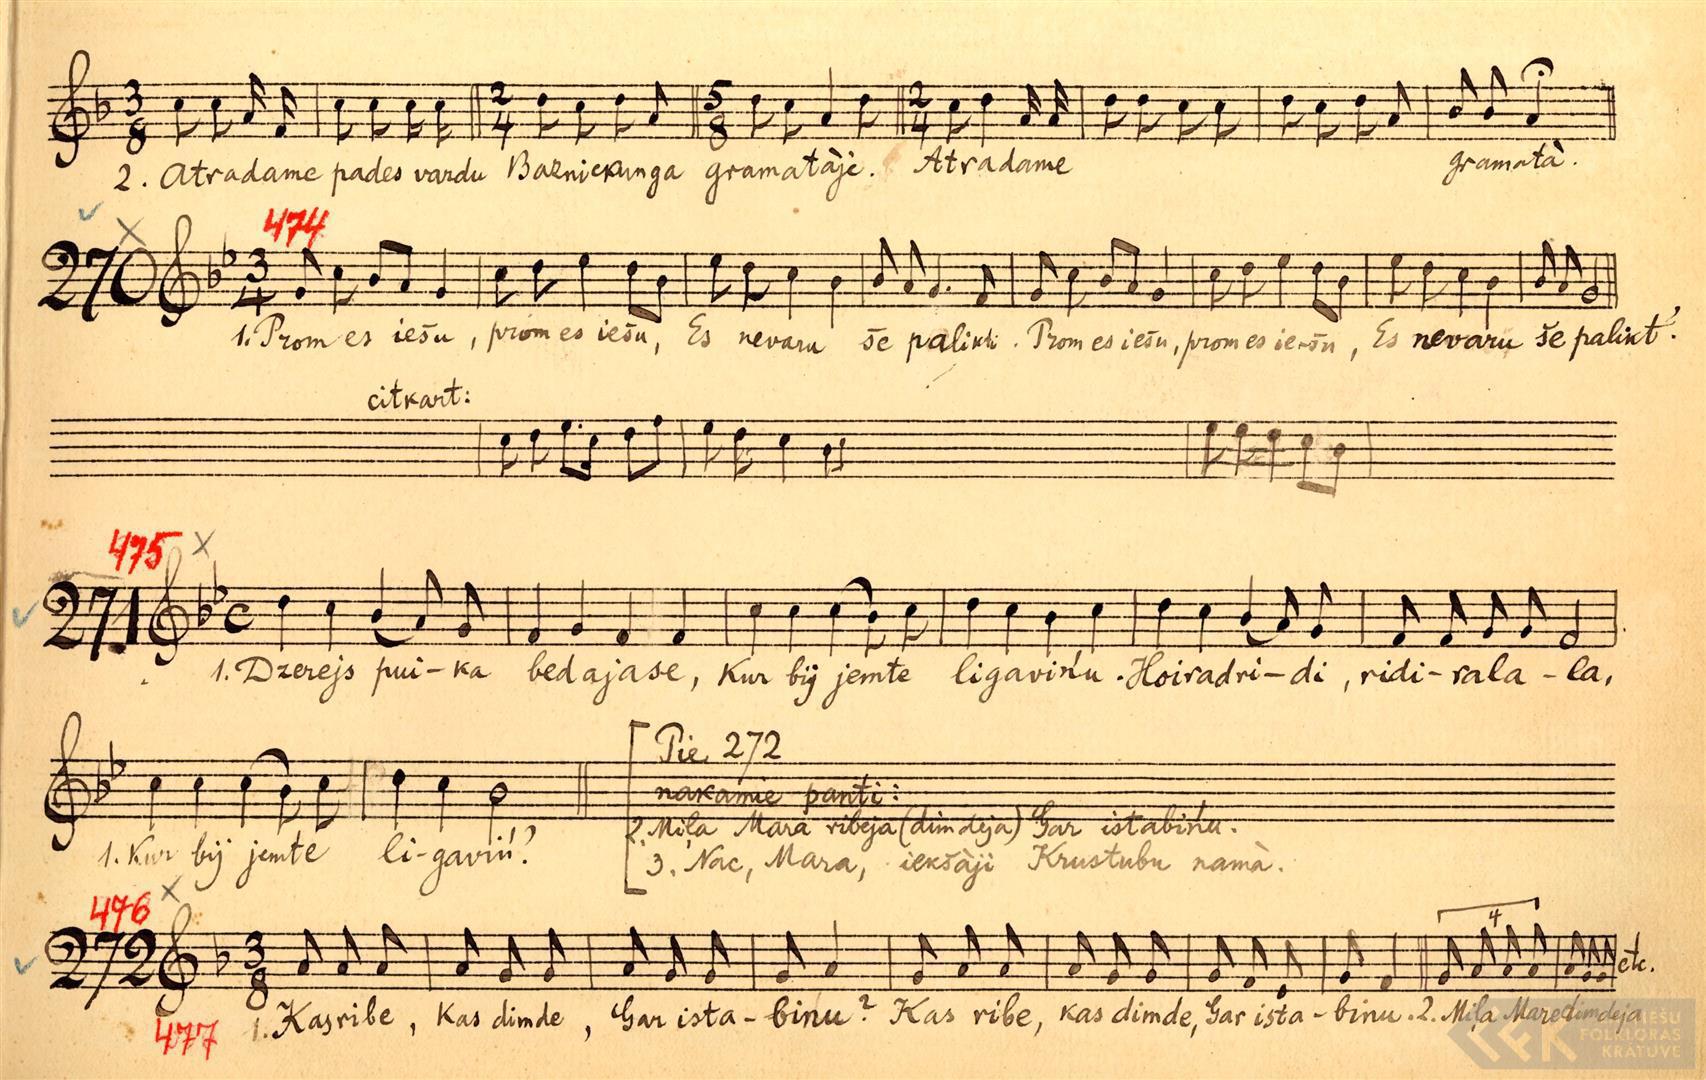 3/8 2/4 5/8 2/4
2. Atradame pades vardu Baznickunga gramatàjè. Atradame gramatà.
474
270 3/4
1. Prom es iešu, prom es iešu, Es nevaru še palikti. Prom es iešu, prom es iešu, Es nevaru še palikt'.
citkart:
475
271 C
1. Dzerejs pui-ka bedajase, Kur bij jemte ligavińu. Hoiradri-di, ridi-rala-la,
Pie 272
nakamie panti:
2. Miļa Mara ribeja (dimdeja) Gar istabińu.
1. Kur bij jemte li-gaviń?
3. Nac, Mara, iekšàji Krustubu namà.
476
4
272 3/8 etc.
1. Kas ribe, Kas dimde, Gar ista-binu? Kas ribe, kas dimde, Gar ista-binu. 2. Miļa Mare dimdeja
477
FOLKLORAS
KRĀTUVE